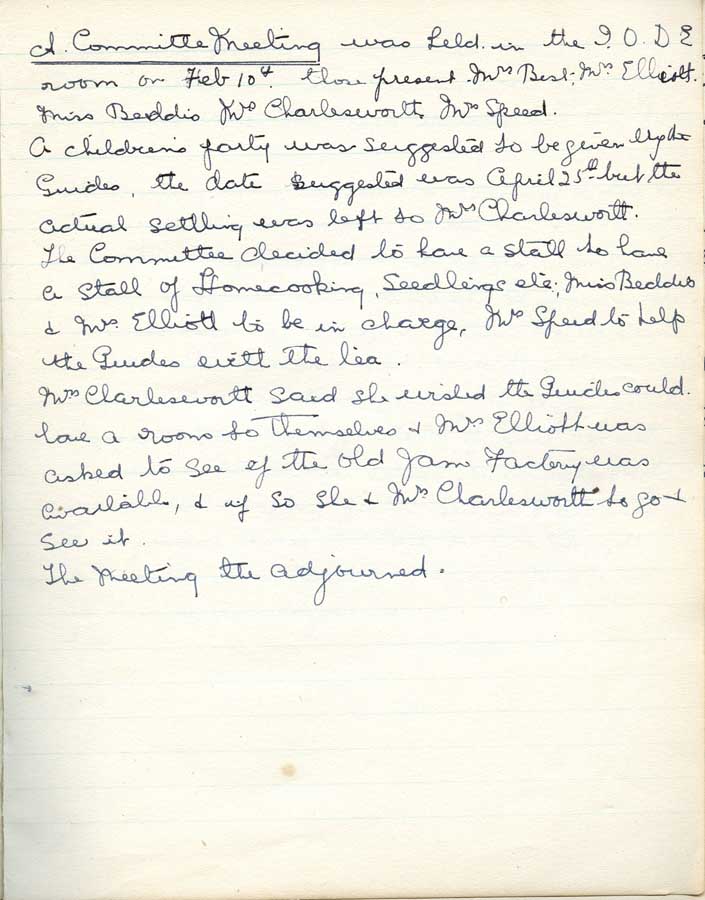 A. Committe Meeting was held in the I.O.D.E
room on Feb 10th. those present Mrs Best, Mrs Elliott.
Miss Beddis Mrs Charlesworth Mrs Speed.
A childrens party was suggested to be given by the
Guides, the date suggested was April 25th but the
actual settling was left to Mrs Charlesworth.
The Committee decided to have a stall to have
a stall of Homecooking, Seedlings etc; Miss Beddis
& Mrs Elliott to be in charge, Mrs Speed to help
the Guides with the tea.
Mrs Charlesworth said she wished the Guides could.
have a room to themselves & Mrs Elliott was
asked to see if the old Jam Factory was
available, & if so she & Mrs Charlesworth to go &
see it.
The Meeting the adjourned.